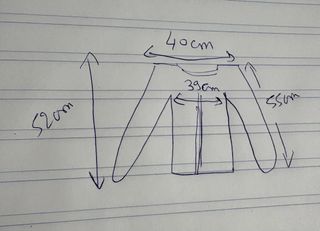 40cm
39cm
55cm
52cm